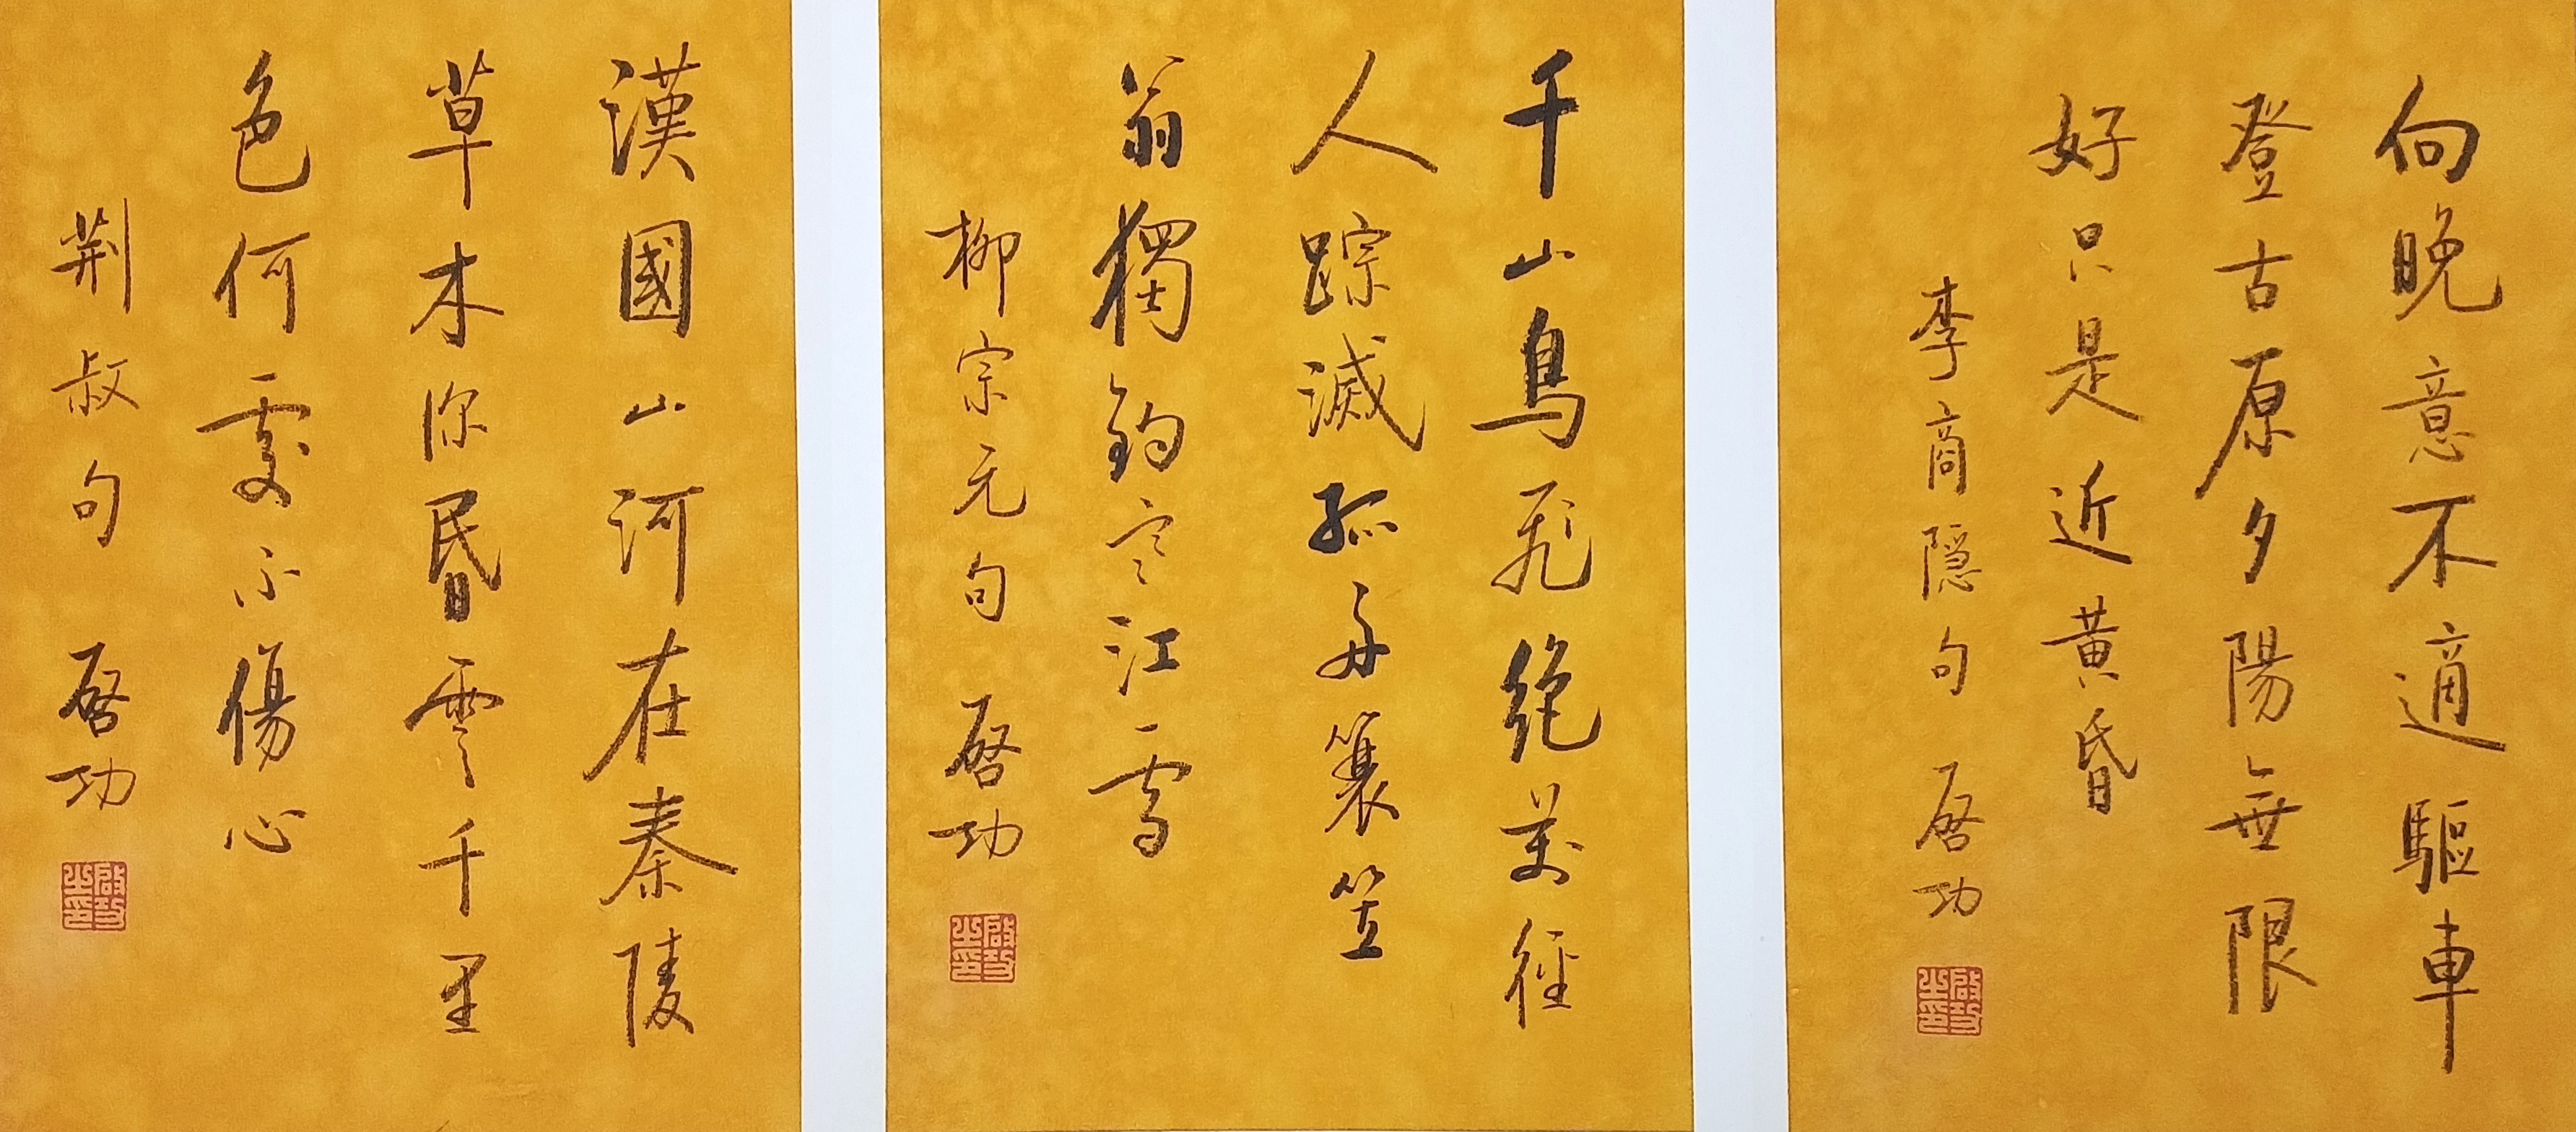 向晚意不適驅車
登古原夕陽無限
好只是近黃昏
李商隱句 啓功
啓功之印
千山鳥飛絶萬徑
人踪滅孤舟蓑笠
翁獨釣寒江雪
柳宗元句 啓功
啓功之印
漢國山河在秦陵
草木深昏雲千里
色何處不傷心
荆叔句 啓功
啓功之印